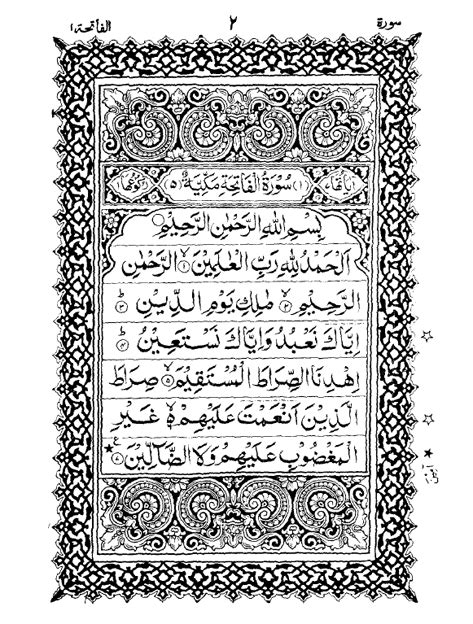 سورة ٢ الفاتحة ١
اٰیاتُهَا (١) سُوْرَةُ الْفَاتِحَةِ مَكِّیَّةٌ (٥) رُكُوْعُهَا
بِسْمِ اللّٰهِ الرَّحْمٰنِ الرَّحِیْمِ
اَلْحَمْدُ لِلّٰهِ رَبِّ الْعٰلَمِیْنَ ۙ۱ الرَّحْمٰنِ
الرَّحِیْمِ ۙ۲ مٰلِكِ یَوْمِ الدِّیْنِ ؕ۳
اِیَّاكَ نَعْبُدُ وَاِیَّاكَ نَسْتَعِیْنُ ؕ۴
اِهْدِنَا الصِّرَاطَ الْمُسْتَقِیْمَ ۙ۵ صِرَاطَ
الَّذِیْنَ اَنْعَمْتَ عَلَیْهِمْ ۙ۬ غَیْرِ
الْمَغْضُوْبِ عَلَیْهِمْ وَلَا الضَّآلِّیْنَ